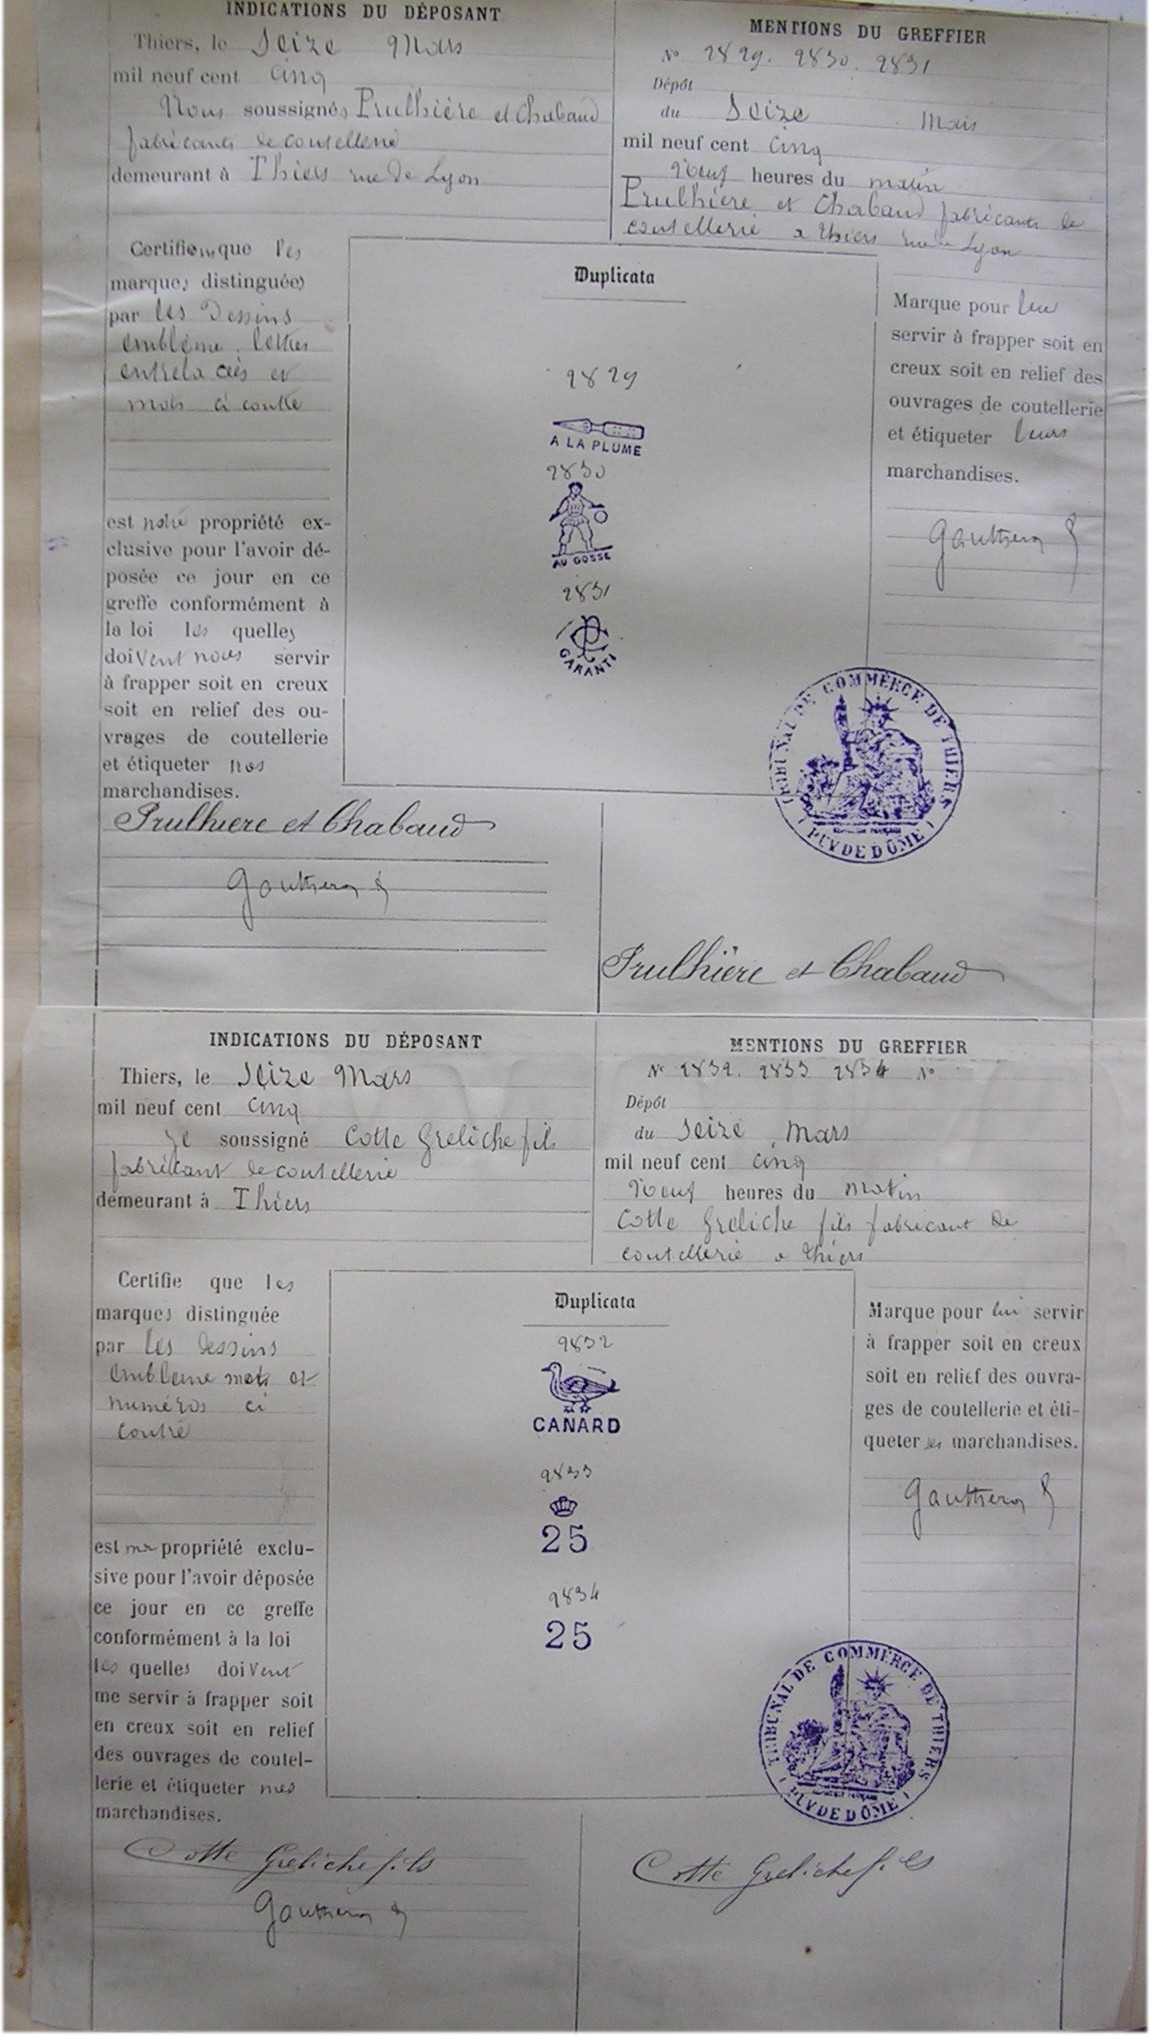 INDICATIONS DU DÉPOSANT
Thiers, le Seize Mars
mil neuf cent Cinq
Nous soussignés Prulhière et Chabaud
fabricants de coutellerie
demeurant à Thiers rue de Lyon
MENTIONS DU GREFFIER
N° 2829. 2830. 2831
Dépôt
du Seize Mars
mil neuf cent Cinq
Neuf heures du matin
Prulhière et Chabaud fabricants de
coutellerie a thiers rue de Lyon
Certifions que les
marques distinguées
par les Dessins
emblème lettres
entrelacées et
mots ci contre
est notre propriété ex-
clusive pour l'avoir dé-
posée ce jour en ce
greffe conformément à
la loi les quelles
doivent nous servir
à frapper soit en creux
soit en relief des ou-
vrages de coutellerie
et étiqueter nos
marchandises.
Prulhiere et Chabaud
Gautheron
Duplicata
2829
A LA PLUME
2830
AU GOSSE
2831
PC
GARANTI
Marque pour leur
servir à frapper soit en
creux soit en relief des
ouvrages de coutellerie
et étiqueter leurs
marchandises.
Gautheron
TRIBUNAL DE COMMERCE DE THIERS
RÉPUBLIQUE FRANÇAISE
( PUY DE DÔME )
Prulhière et Chabaud
INDICATIONS DU DÉPOSANT
Thiers, le Seize Mars
mil neuf cent Cinq
Je soussigné Cotte Greliche fils
fabricant de coutellerie
demeurant à Thiers
MENTIONS DU GREFFIER
N° 2832. 2833 2834 N°
Dépôt
du Seize Mars
mil neuf cent cinq
Neuf heures du Matin
Cotte Greliche fils fabricant de
coutellerie a thiers
Certifie que les
marques distinguée
par les dessins
emblème mots et
numéros ci
contre
est ma propriété exclu-
sive pour l'avoir déposée
ce jour en ce greffe
conformément à la loi
les quelles doivent
me servir à frapper soit
en creux soit en relief
des ouvrages de coutel-
lerie et étiqueter mes
marchandises.
Cotte Greliche fils
Gautheron
Duplicata
2832
CANARD
2833
25
2834
25
Marque pour lui servir
à frapper soit en creux
soit en relief des ouvra-
ges de coutellerie et éti-
queter ses marchandises.
Gautheron
TRIBUNAL DE COMMERCE DE THIERS
RÉPUBLIQUE FRANÇAISE
( PUY DE DÔME )
Cotte Greliche fils